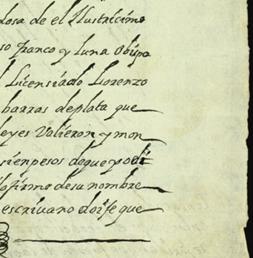 losa de el Ilustricimo
so franco y luna obispo
l Licensiado Lorenzo
barras deplata que
leyes Valieron y mon
sienpesos dequeyodi
lofirmo desu nombre
escrivano doife que